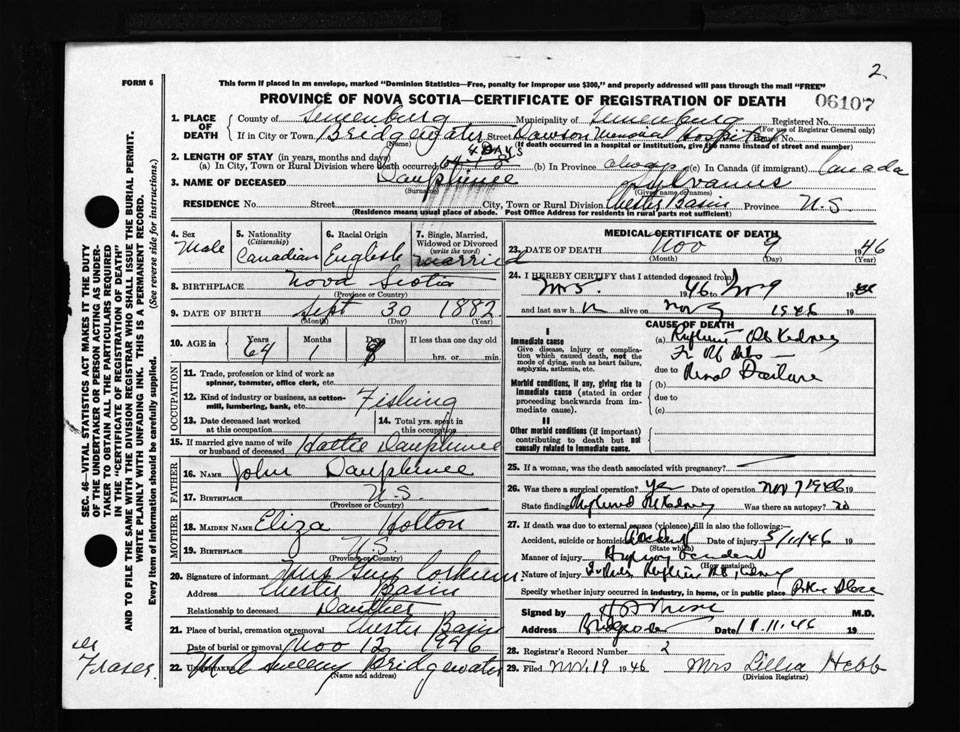 2
FORM 6
This form if placed in an envelope, marked "Dominion Statistics—Free, penalty for improper use $300," and properly addressed will pass through the mail "FREE"
PROVINCE OF NOVA SCOTIA—CERTIFICATE OF REGISTRATION OF DEATH
06107
1. PLACE OF DEATH
County of Lunenburg Municipality of Lunenburg Registered No.
(For use of Registrar General only)
If in City or Town Bridgewater Street Dawson Memorial Hospital
(Name) (If death occurred in a hospital or institution, give the name instead of street and number)
2. LENGTH OF STAY (in years, months and days) 4 DAYS
(a) In City, Town or Rural Division where death occurred (b) In Province always (c) In Canada (if immigrant) Canada
3. NAME OF DECEASED Dauphinee Sylvanus
(Surname) (Given name or names)
RESIDENCE No. Street City, Town or Rural Division Chester Basin Province N.S.
(Residence means usual place of abode. Post Office Address for residents in rural parts not sufficient)
4. Sex Male
5. Nationality (Citizenship) Canadian
6. Racial Origin English
7. Single, Married, Widowed or Divorced (write the word) Married
8. BIRTHPLACE Nova Scotia
(Province or Country)
9. DATE OF BIRTH Sept 30 1882
(Month) (Day) (Year)
10. AGE in Years Months Days If less than one day
64 1 9 hrs. or min.
OCCUPATION
11. Trade, profession or kind of work as spinner, teamster, office clerk, etc.
12. Kind of industry or business, as cotton-mill, lumbering, bank, etc. Fishing
13. Date deceased last worked at this occupation
14. Total yrs. spent in this occupation
15. If married give name of wife or husband of deceased Hattie Dauphinee
FATHER
16. NAME John Dauphinee
17. BIRTHPLACE N.S.
(Province or Country)
MOTHER
18. MAIDEN NAME Eliza Holton
19. BIRTHPLACE N.S.
(Province or Country)
20. Signature of informant Mrs Guy Corkum
Address Chester Basin
Relationship to deceased Daughter
21. Place of burial, cremation or removal Chester Basin
Date of burial or removal Nov 12 1946
22. UNDERTAKER Sweeny Bridgewater
(Name and address)
Fraser
MEDICAL CERTIFICATE OF DEATH
23. DATE OF DEATH Nov 9 1946
(Month) (Day) (Year)
24. I HEREBY CERTIFY that I attended deceased from
Nov 5. 1946 to Nov 9 19
and last saw h alive on Nov 1946
CAUSE OF DEATH
I
Immediate cause
Give disease, injury or complication which caused death, not the mode of dying, such as heart failure, asphyxia, asthenia, etc.
(a) Kidney
due to Renal
Morbid conditions, if any, giving rise to immediate cause (stated in order proceeding backwards from immediate cause).
(b)
due to
(c)
II
Other morbid conditions (if important) contributing to death but not causally related to immediate cause.
25. If a woman, was the death associated with pregnancy?
26. Was there a surgical operation? yes Date of operation Nov 7 1946 19
State findings Kidney Was there an autopsy? no
27. If death was due to external causes (violence), fill in also the following:—
Accident, suicide or homicide Accident Date of injury 5/11/46 19
(State which)
Manner of injury Highway accident
(How sustained)
Nature of injury Kidney
Specify whether injury occurred in industry, in home, or in public place
Signed by M.D.
Address Bridgewater Date 11.11.46 19
28. Registrar's Record Number 2
29. Filed Nov. 19 1946 Mrs Lillia Hebb
(Division Registrar)
SEC. 46—VITAL STATISTICS ACT MAKES IT THE DUTY
OF THE UNDERTAKER OR PERSON ACTING AS UNDER-
TAKER TO OBTAIN ALL THE PARTICULARS REQUIRED
IN THE "CERTIFICATE OF REGISTRATION OF DEATH"
AND TO FILE THE SAME WITH THE DIVISION REGISTRAR WHO SHALL ISSUE THE BURIAL PERMIT.
WRITE PLAINLY WITH UNFADING INK. THIS IS A PERMANENT RECORD.
Every item of information should be carefully supplied. (See reverse side for instructions.)